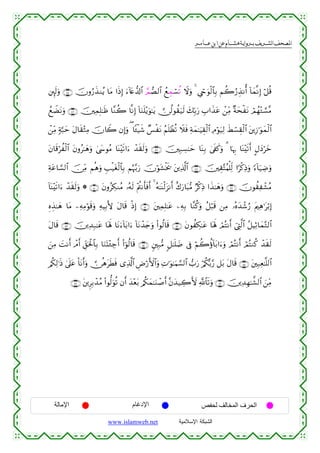 المصحف الشريف برواية هشام عن ابن عامر
قُلْ إِنَّمَا أُنذِرُكُم بِٱلْوَحْىِ ۚ وَلَا تُسْمِعُ ٱلصُّمَّ ٱلدُّعَآءَ إِذَا مَا يُنذَرُونَ وَلَئِن
مَّسَّتْهُمْ نَفْحَةٌ مِّنْ عَذَابِ رَبِّكَ لَيَقُولُنَّ يَٰوَيْلَنَآ إِنَّا كُنَّا ظَٰلِمِينَ وَنَضَعُ
ٱلْمَوَٰزِينَ ٱلْقِسْطَ لِيَوْمِ ٱلْقِيَٰمَةِ فَلَا تُظْلَمُ نَفْسٌ شَيْـًٔا ۖ وَإِن كَانَ مِثْقَالَ حَبَّةٍ مِّنْ
خَرْدَلٍ أَتَيْنَا بِهَا ۗ وَكَفَىٰ بِنَا حَٰسِبِينَ وَلَقَدْ ءَاتَيْنَا مُوسَىٰ وَهَٰرُونَ ٱلْفُرْقَانَ
وَضِيَآءً وَذِكْرًا لِّلْمُتَّقِينَ ٱلَّذِينَ يَخْشَوْنَ رَبَّهُم بِٱلْغَيْبِ وَهُم مِّنَ ٱلسَّاعَةِ
مُشْفِقُونَ وَهَٰذَا ذِكْرٌ مُّبَارَكٌ أَنزَلْنَٰهُ ۚ أَفَأَنتُمْ لَهُۥ مُنكِرُونَ ۞ وَلَقَدْ ءَاتَيْنَآ
إِبْرَٰهِيمَ رُشْدَهُۥ مِن قَبْلُ وَكُنَّا بِهِۦ عَٰلِمِينَ إِذْ قَالَ لِأَبِيهِ وَقَوْمِهِۦ مَا هَٰذِهِ
ٱلتَّمَاثِيلُ ٱلَّتِىٓ أَنتُمْ لَهَا عَٰكِفُونَ قَالُوا۟ وَجَدْنَآ ءَابَآءَنَا لَهَا عَٰبِدِينَ قَالَ
لَقَدْ كُنتُمْ أَنتُمْ وَءَابَآؤُكُمْ فِى ضَلَٰلٍ مُّبِينٍ قَالُوٓا۟ أَجِئْتَنَا بِٱلْحَقِّ أَمْ أَنتَ مِنَ
ٱللَّٰعِبِينَ قَالَ بَل رَّبُّكُمْ رَبُّ ٱلسَّمَٰوَٰتِ وَٱلْأَرْضِ ٱلَّذِى فَطَرَهُنَّ وَأَنَا۠ عَلَىٰ ذَٰلِكُم
مِّنَ ٱلشَّٰهِدِينَ وَتَٱللَّهِ لَأَكِيدَنَّ أَصْنَٰمَكُم بَعْدَ أَن تُوَلُّوا۟ مُدْبِرِينَ
الحرف المخالف لحفص الإدغام الإمالة
الشبكة الإسلامية www.islamweb.net